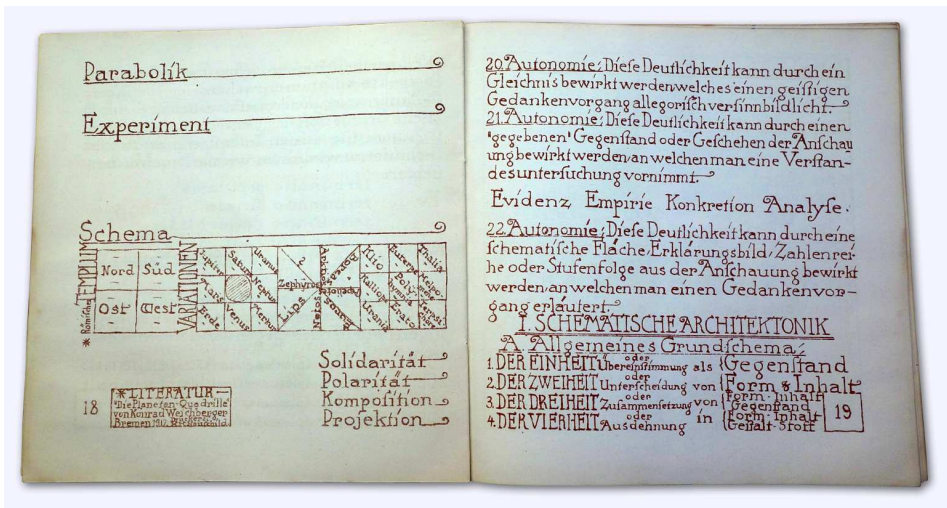 Parabolik
Experiment
Schema
Römische TEMPLUM
Nord Süd
Ost West
VARIATIONEN
Jupiter Saturn Uranus
Mars Merkur
Erde Venus Neptun
Zephyros
Lips
Notos
Boreas
Klio Euterpe Thalia
Kalliope Polyhymnia Melpomene
Urania Erato Terpsichore
Solidarität
Polarität
Komposition
Projektion
18
*LITERATUR
"Die Planeten-Quadrille"
von Konrad Weichberger
Bremen 1917
20. Autonomie: Diese Deutlichkeit kann durch ein
Gleichnis bewirkt werden welches einen geistigen
Gedankenvorgang allegorisch versinnbildlicht.
21. Autonomie: Diese Deutlichkeit kann durch einen
"gegebenen" Gegenstand oder Geschehen der Anschau
ung bewirkt werden an welchen man eine Verstan-
desuntersuchung vornimmt.
Evidenz Empirie Konkretion Analyse.
22. Autonomie: Diese Deutlichkeit kann durch eine
schematische Fläche/Erklärungsbild/Zahlenrei-
he oder Stufenfolge aus der Anschauung bewirkt
werden/an welchen man einen Gedankenvor-
gang erläutert.
I. SCHEMATISCHE ARCHITEKTONIK
A. Allgemeines Grundschema:
1. DER EINHEIT oder Übereinstimmung als {Gegenstand
2. DER ZWEIHEIT oder Unterscheidung von {Form & Inhalt
3. DER DREIHEIT oder Zusammensetzung von {Form-Inhalt Gegenstand
4. DER VIERHEIT oder Ausdehnung in {Form-Inhalt Gestalt-Stoff
19